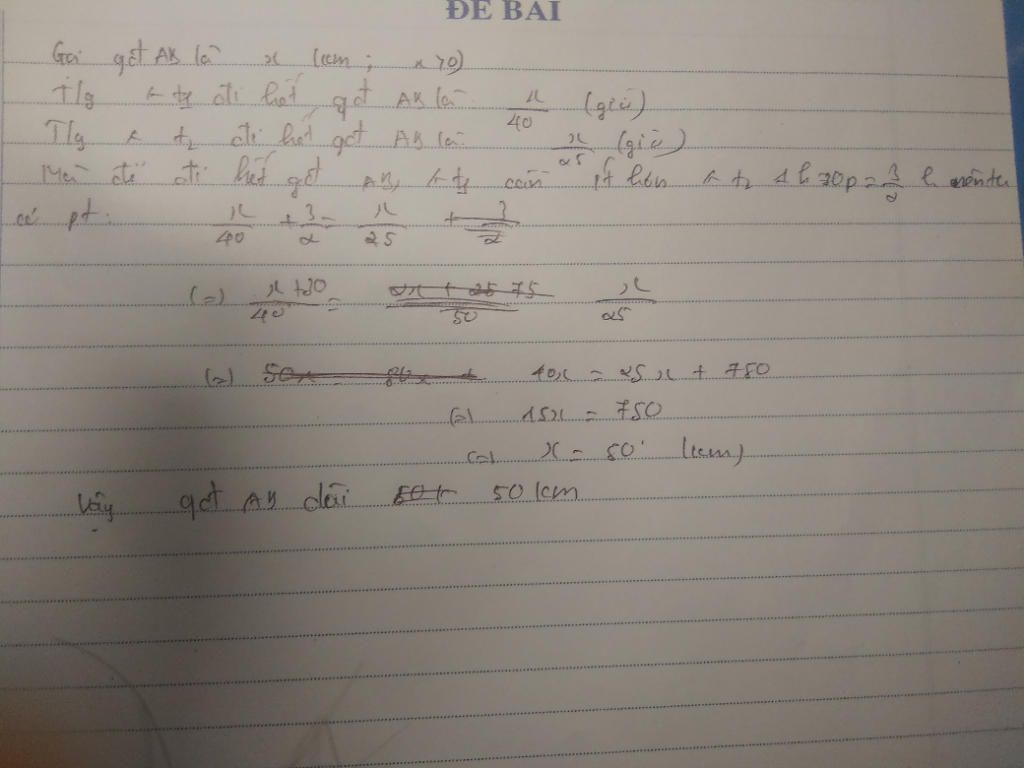 ĐỀ BÀI
Gọi qđ AB là x (km; x>0)
T/g đi hết qđ AB là x/40 (giờ)
T/g đi hết qđ AB là x/25 (giờ)
Mà để đi hết qđ AB, cần ít hơn 1h30p = 3/2 h nên ta
có pt: x/40 + 3/2 = x/25 + 3/2
(=) x+30/40 = 2x + 25 75/50 x/25
(=) 50x = 80x + 40x = 25x + 750
(=) 15x = 750
(=) x = 50 (km)
Vậy qđ AB dài 50k 50 km